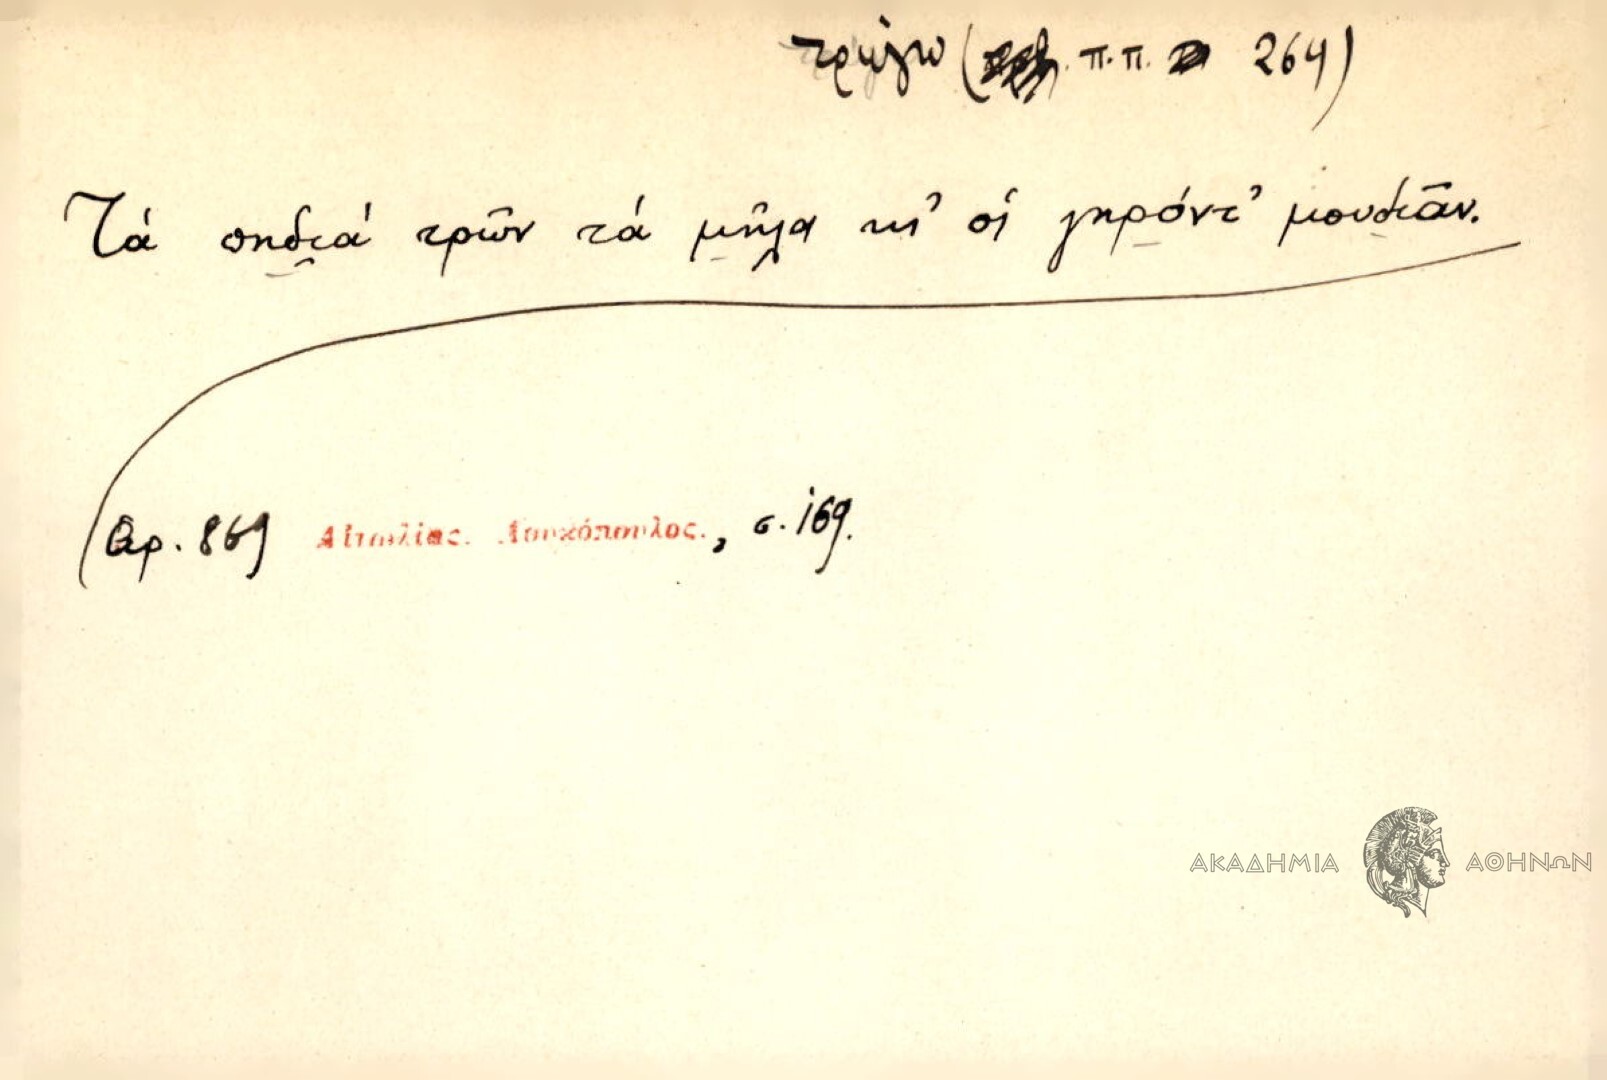 τρώγω ( π.π. 264)
Τά πηδιά τρῶν τά μῆλα κι᾿ οἱ γηρόντ᾿ μουδιᾶν.
Αρ. 869 Αἰτωλίας. Λουκόπουλος., σ. 169.
ΑΚΑΔΗΜΙΑ ΑΘΗΝΩΝ